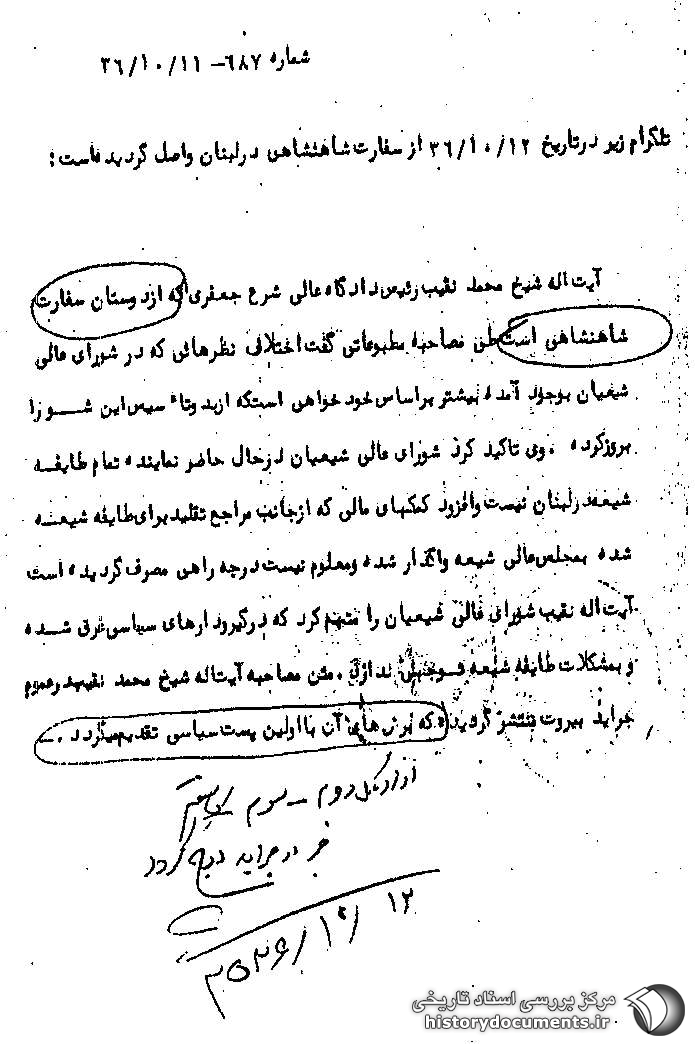 شماره ۶۸۷-۳۶/۱۰/۱۱
تلگرام زیر در تاریخ ۳۶/۱۰/۱۲ از سفارت شاهنشاهی در لبنان واصل گردیده است :
آیت اله شیخ محمد نقیب رئیس دادگاه عالی شرع جعفری که از دوستان سفارت
شاهنشاهی است طی مصاحبه مطبوعاتی گفت اختلاف نظرهائی که در شورای عالی
شیعیان بوجود آمده بیشتر بر اساس خود خواهی است که از بدو تاسیس این شورا
بروز کرده . وی تاکید کرد شورای عالی شیعیان در حال حاضر نماینده تمام طایفه
شیعه در لبنان نیست و افزود کمکهای مالی که از جانب مراجع تقلید برای طایفه شیعه
شده بمجلس عالی شیعه واگذار شده و معلوم نیست در چه راهی مصرف گردیده است
آیت اله نقیب شورای عالی شیعیان را متهم کرد که در گیرودارهای سیاسی غرق شده
و بمشکلات طایفه شیعه توجهی ندارد . متن مصاحبه آیت اله شیخ محمد نقیب در عموم
جراید بیروت منتشر گردیده که برش های آن با اولین پست سیاسی تقدیم میگردد .
دوم - سوم
خبر در جراید درج گردد
۲۵۳۶/۱۰/۱۲
مرکز بررسی اسناد تاریخی
historydocuments.ir